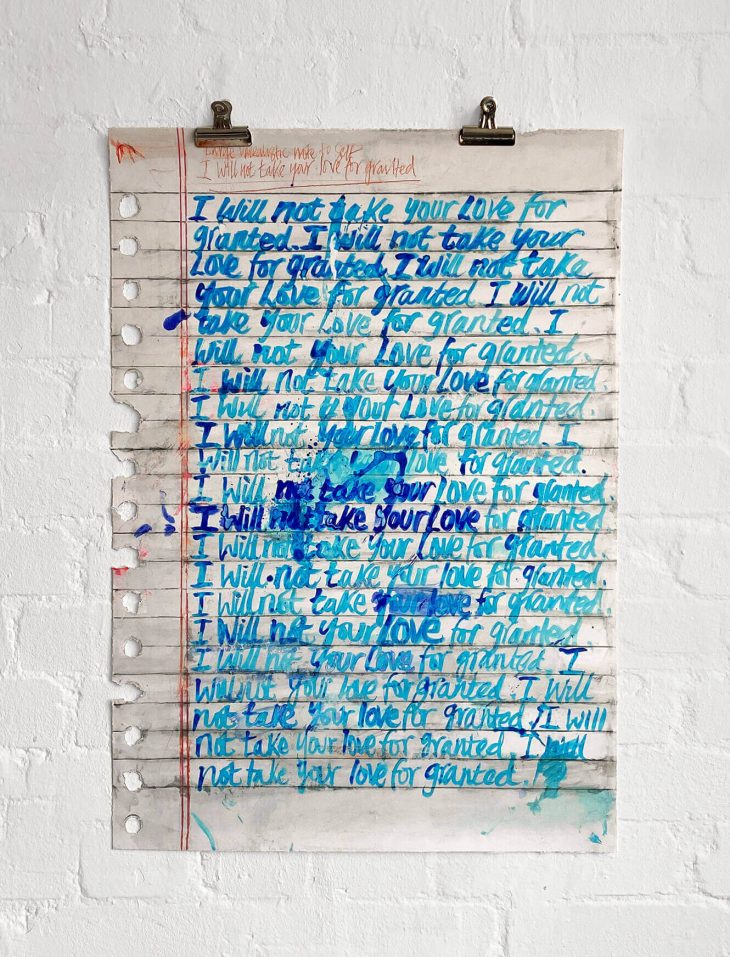 Large unrealistic note to self
I will not take your love for granted
I will not take your Love for
granted. I will not take your
Love for granted. I will not take
your Love for granted. I will not
take your Love for granted. I
will not your Love for granted.
I will not take your Love for granted.
I will not your Love for granted.
I will not your Love for granted. I
will not take love for granted.
I will not take your love for granted.
I will not take your Love for granted
I will not take your love for granted.
I will not take your love for granted.
I will not take your love for granted.
I will not your love for granted
I will not your Love for granted. I
will not your love for granted. I will
not take your love for granted. I will
not take your love for granted I will
not take your love for granted.